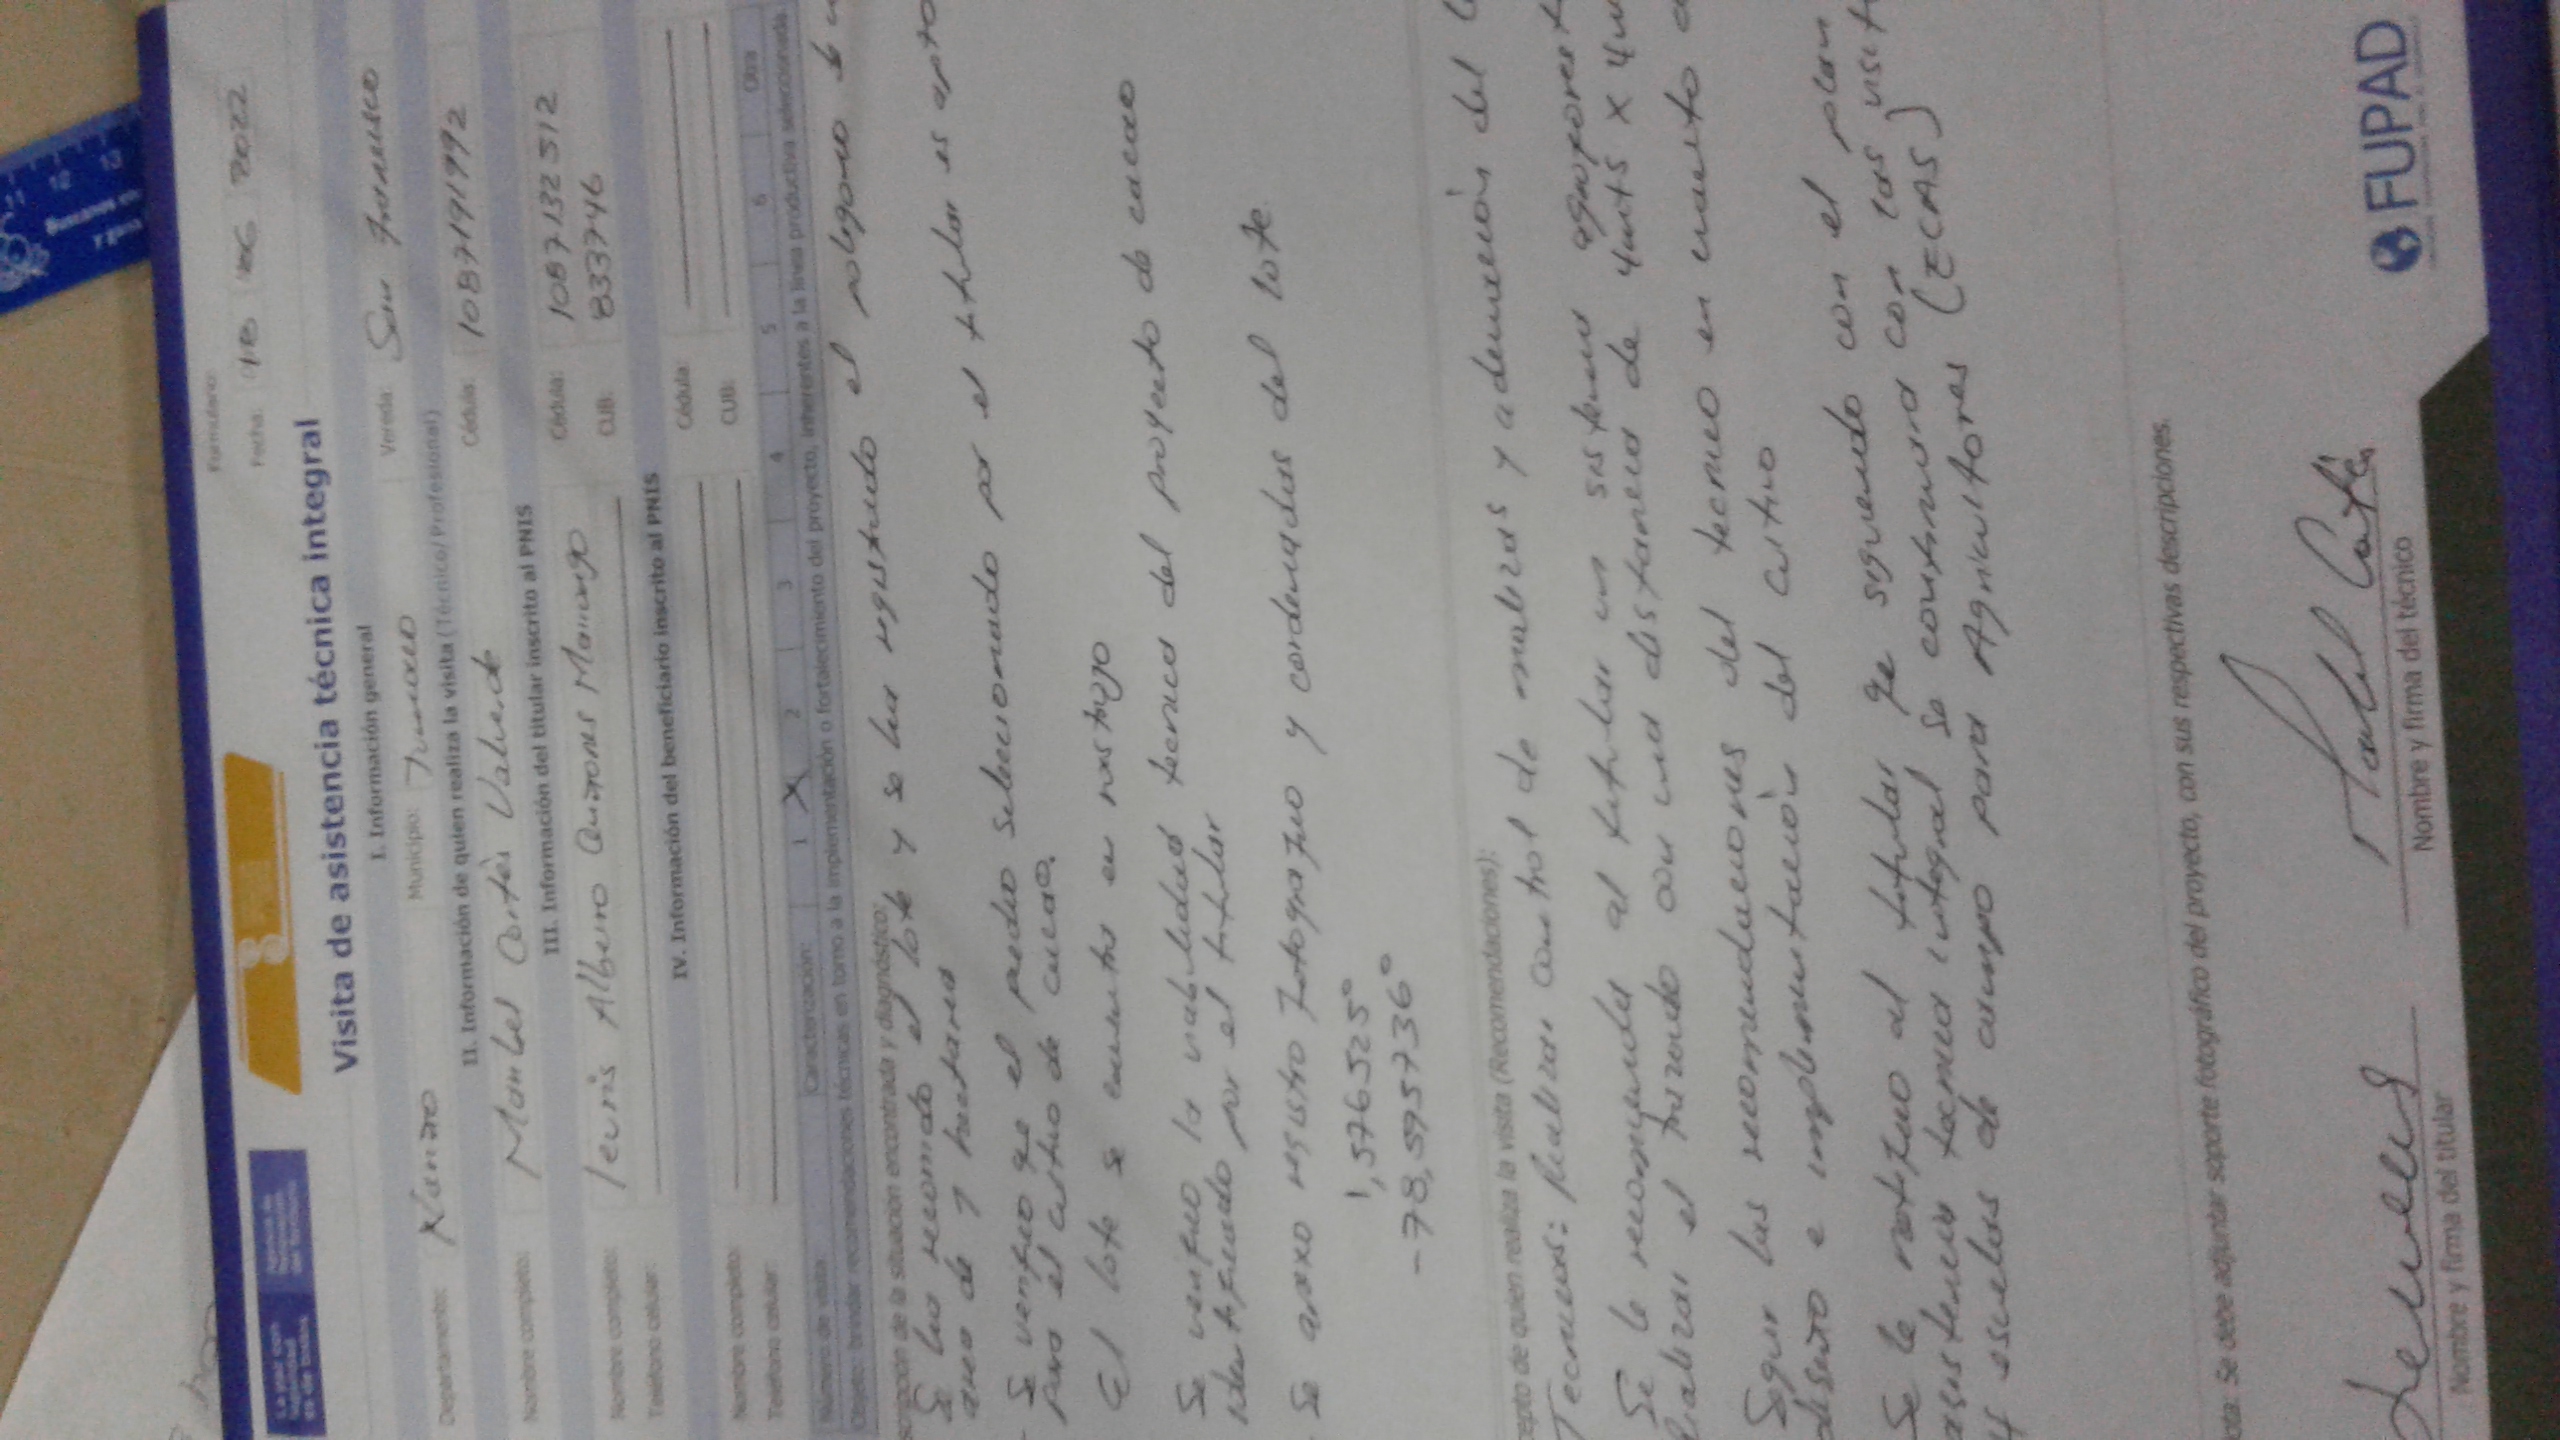 Formulario:
Fecha: 18 2022
Visita de asistencia técnica integral
I. Información general
Departamento: Nariño Municipio: Tumaco Vereda: San Francisco
II. Información de quien realiza la visita (Técnico/Profesional)
Nombre completo: Manuel Cortès Valverde Cédula: 1087191992
III. Información del titular inscrito al PNIS
Nombre completo: Alberio Quiñones Cédula: 1087132512
Teléfono celular: CUB: 833746
IV. Información del beneficiario inscrito al PNIS
Nombre completo: Cédula:
Teléfono celular: CUB:
Número de visita: Caracterización: 1 X 2 3 4 5 6 Otra
Objeto: brindar recomendaciones técnicas en torno a la implementación o fortalecimiento del proyecto, inherentes a la línea productiva seleccionada
scripción de la situación encontrada y diagnóstico:
Se ha recorrido el lote y se ha registrado el poligono de u
area de 1 hectarea
- Se verifico qe el predio seleccionado por el titular es apto
para el cultivo de cacao.
El lote se encuentra en rastrojo
Se verifico la viabilidad tecnica del proyecto de cacao
identificado por el titular
- Se anexo registro fotografico y cordenadas del lote
1,576525°
-78,5957336°
cepto de quien realiza la visita (Recomendaciones):
Tecnicas: Realizar control de malezas y ademeción del
Se le recomienda al titular un sistema agroforest
Realizar el trazado con una distancia de 4mts x 4m
Seguir las recomendaciones del tecnico en cuanto a
diseño e implementación del cultivo
Se le notifico al titular qe siguiendo con el plan
asistencia tecnica integral se continuara con las visit
y escuelas de campo para Agricultores (ECAS)
ota: Se debe adjuntar soporte fotográfico del proyecto, con sus respectivas descripciones.
Nombre y firma del titular Nombre y firma del técnico
FUPAD